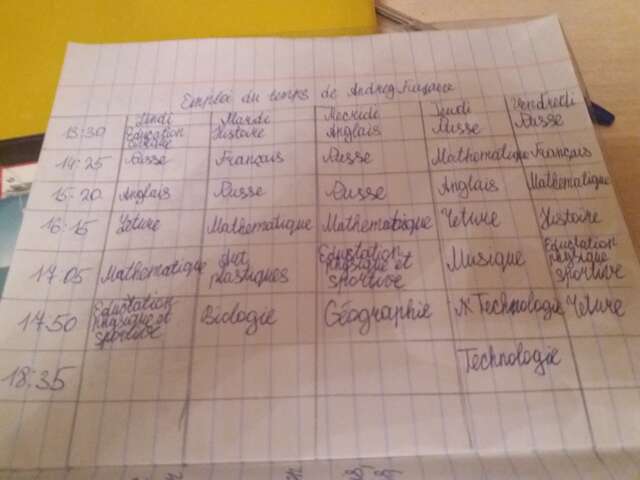 Emploi du temps de Andrey
Lundi Mardi Mecride Jeudi Vendredi
13:30 Education Histoire Anglais Russe Russe
14:25 Russe Français Russe Mathematique Français
15:20 Anglais Russe Russe Anglais Mathematique
16:15 Leture Mathematique Mathematique Leture Histoire
17:05 Mathematique plastiques Eduction physique et sportive Musique Eduction physique sportive
17:50 Eduction physique et sportive Biologie Géographie N Technologie Leture
18:35 Technologie